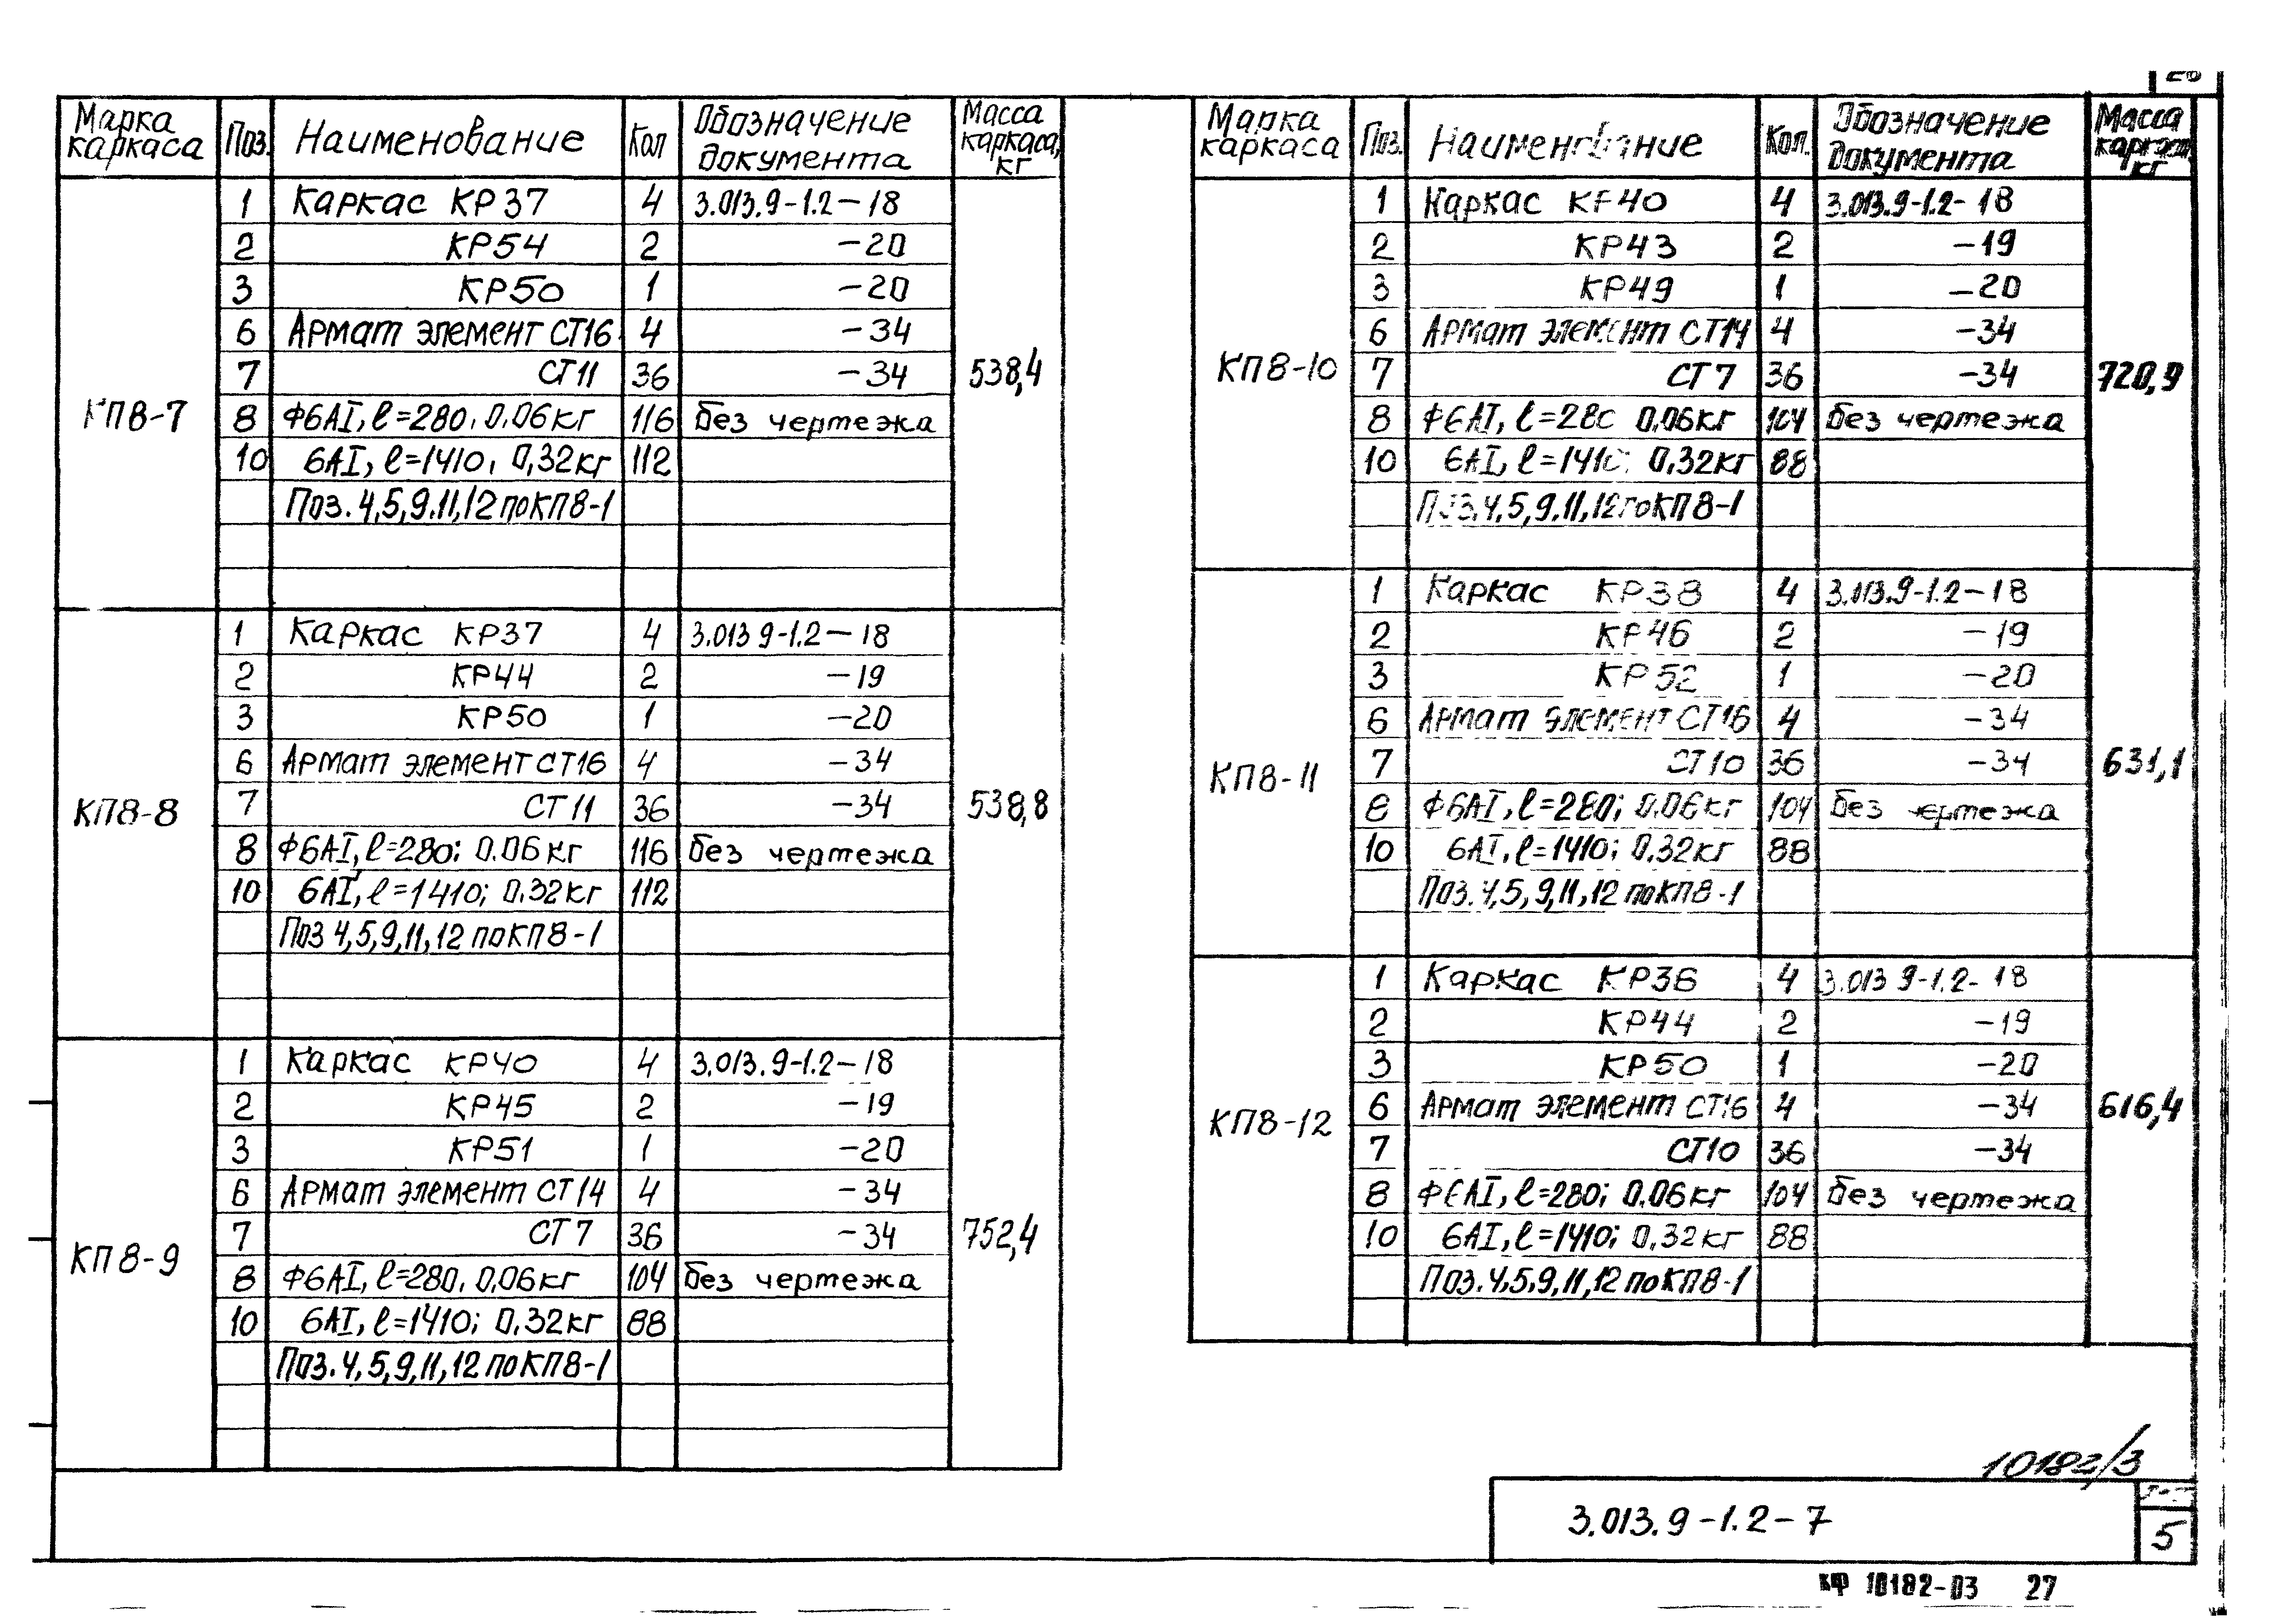 Марка каркаса Поз. Наименование Кол Обозначение документа Масса каркаса, кг
КП8-7
1 Каркас КР37 4 3.013.9-1.2-18
2 КР54 2 -20
3 КР50 1 -20
6 Армат элемент СТ16 4 -34
7 СТ11 36 -34 538,4
8 Ф6АI, ℓ=280, 0.06кг 116 без чертежа
10 6АI, ℓ=1410, 0,32кг 112
Поз. 4,5,9.11,12 по КП8-1
КП8-8
1 Каркас КР37 4 3.013 9-1.2-18
2 КР44 2 -19
3 КР50 1 -20
6 Армат элемент СТ16 4 -34
7 СТ11 36 -34 538,8
8 Ф6АI, ℓ=280; 0.06кг 116 без чертежа
10 6АI, ℓ=1410; 0.32кг 112
Поз 4,5,9,11,12 по КП8-1
КП8-9
1 Каркас КР40 4 3.013.9-1.2-18
2 КР45 2 -19
3 КР51 1 -20
6 Армат элемент СТ14 4 -34
7 СТ7 36 -34 752,4
8 Ф6АI, ℓ=280, 0,06кг 104 без чертежа
10 6АI, ℓ=1410; 0.32кг 88
Поз. 4,5,9,11,12 по КП8-1
Марка каркаса Поз. Наименование Кол. Обозначение документа Масса каркаса, кг
КП8-10
1 Каркас КР40 4 3.013.9-1.2-18
2 КР43 2 -19
3 КР49 1 -20
6 Армат элемент СТ14 4 -34
7 СТ7 36 -34 720,9
8 Ф6АI, ℓ=280 0.06кг 104 без чертежа
10 6АI, ℓ=1410; 0.32кг 88
Поз. 4,5,9.11,12 по КП8-1
КП8-11
1 Каркас КР38 4 3.013.9-1.2-18
2 КР46 2 -19
3 КР52 1 -20
6 Армат элемент СТ16 4 -34
7 СТ10 36 -34 631,1
8 Ф6АI, ℓ=280; 0.06кг 104 без чертежа
10 6АI, ℓ=1410; 0.32кг 88
Поз. 4,5,9,11,12 по КП8-1
КП8-12
1 Каркас КР36 4 3.013 9-1.2-18
2 КР44 2 -19
3 КР50 1 -20
6 Армат элемент СТ16 4 -34 616,4
7 СТ10 36 -34
8 Ф6АI, ℓ=280; 0.06кг 104 без чертежа
10 6АI, ℓ=1410; 0.32кг 88
Поз. 4,5,9,11,12 по КП8-1
10182/3
3.013.9-1.2-7
5
КФ 10182-03 27